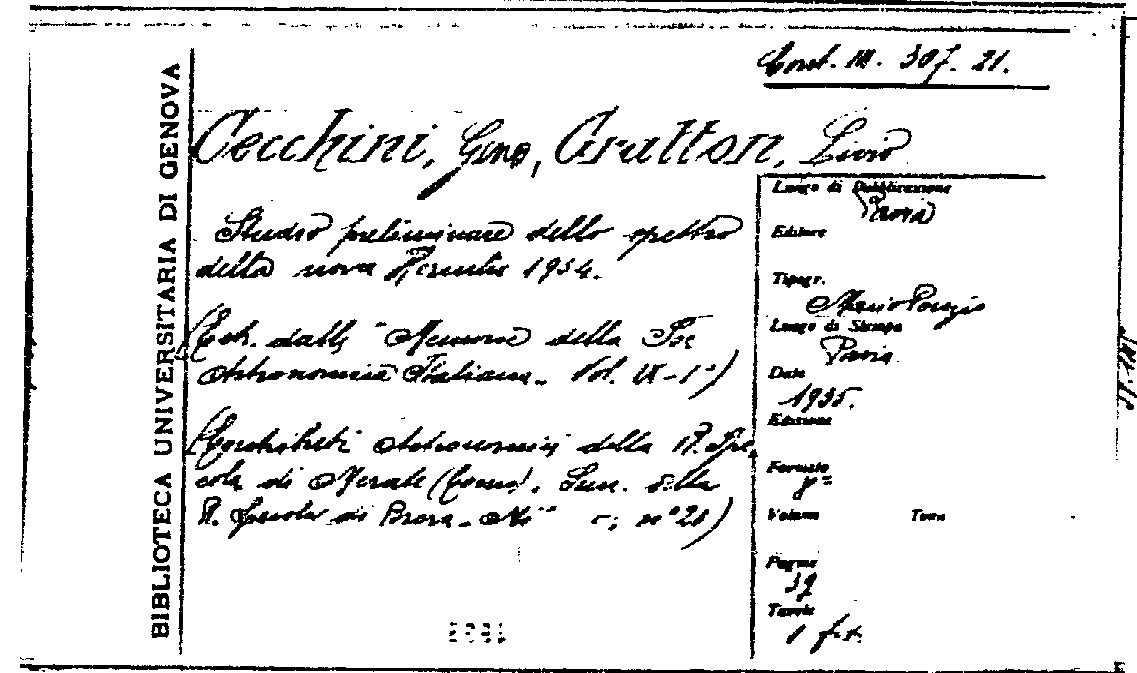 BIBLIOTECA UNIVERSITARIA DI GENOVA
307. 21.
Cecchini, Gino, Gratton, Livio
Studio preliminare dello spettro
della nova Herculis 1934.
(Estr. dalle "Memorie della Soc.
Astronomica Italiana. Vol. IX-1°)
(Contributi Astronomici della R. Spe-
cola di Merate (Como). Suc. della
R. Specola di Brera - Mi" - ; n° 21)
Luogo di Pubblicazione
Pavia
Editore
Tipogr.
Mario Ponzio
Luogo di Stampa
Pavia
Data
1935.
Edizione
Formato
8°
Volume Tomo
Pagine
39
Tavole
1 f.t.